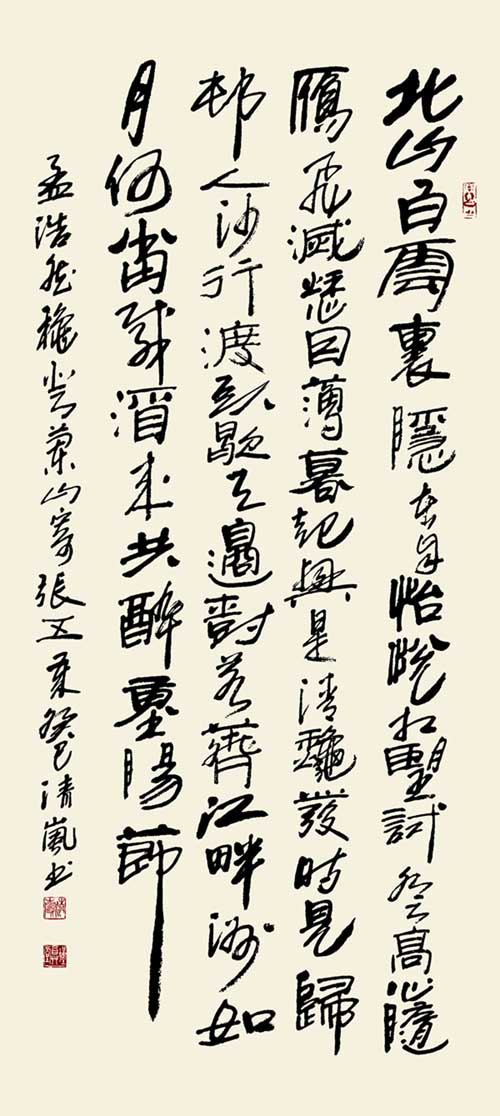 北山白雲裏隱者自怡悅相望試登高心隨
鴈飛滅愁因薄暮起興是清龝發時見歸
邨人沙行渡頭歇天邊樹若薺江畔洲如
月何當載酒來共醉重陽節
孟浩然穐登蘭山寄張五癸巳清嵐书